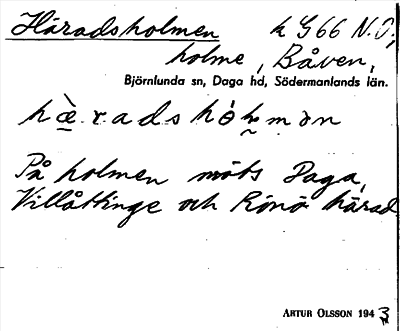 Häradsholmen k 466 N.O.,
holme, Båven,
Björnlunda sn, Daga hd, Södermanlands län.
hæ̀.radshòlmən
På holmen möts Daga,
Villåttinge och Rönö härad
ARTUR OLSSON 1943